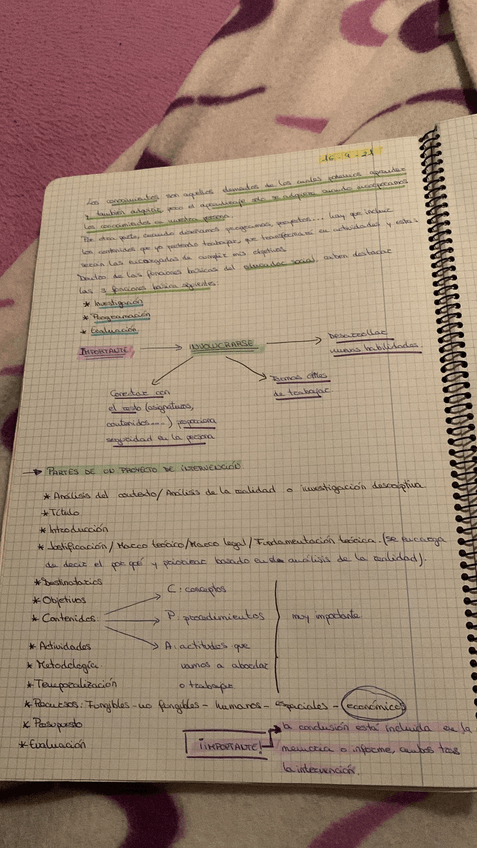 16-9-21
Los conocimientos son aquellos demandas de los cuales podemos aprender
y también adquirir, pero el aprendizaje solo se adquiere cuando incorporamos
los conocimientos en nuestra persona.
Por otra parte, cuando diseñamos programas, proyectos... hay que incluir
los contenidos que yo pretendo trabajar, que transformaré en actividades y estas
serán las encargadas de cumplir mis objetivos.
Dentro de las funciones básicas del educador social, caben destacar
las 3 funciones básicas siguientes:
* Investigación
* Programación
* Evaluación
IMPORTANTE → INVOLUCRARSE → Desarrollar
nuevas habilidades.
Conectar con
el resto (asignaturas,
contenidos....) proporciona
seguridad en la persona
Formas útiles
de trabajar
→ PARTES DE UN PROYECTO DE INTERVENCIÓN
* Análisis del contexto/Análisis de la realidad o investigación descriptiva
* Título
* Introducción
* Justificación/Marco teórico/Marco legal/Fundamentación teórica. (se encarga
de decir el por qué y para basado en análisis de la realidad).
* Destinatarios
* Objetivos
* Contenidos:
C: conceptos
P: procedimientos
A: actitudes que
vamos a abordar
o trabajar
muy importante
* Actividades
* Metodología
* Temporalización
* Recursos: Fungibles - no fungibles - humanos - espaciales - económicos
* Presupuesto
* Evaluación
¡IMPORTANTE! → la conclusión está incluida en la
memoria o informe, ambos tras
la intervención.